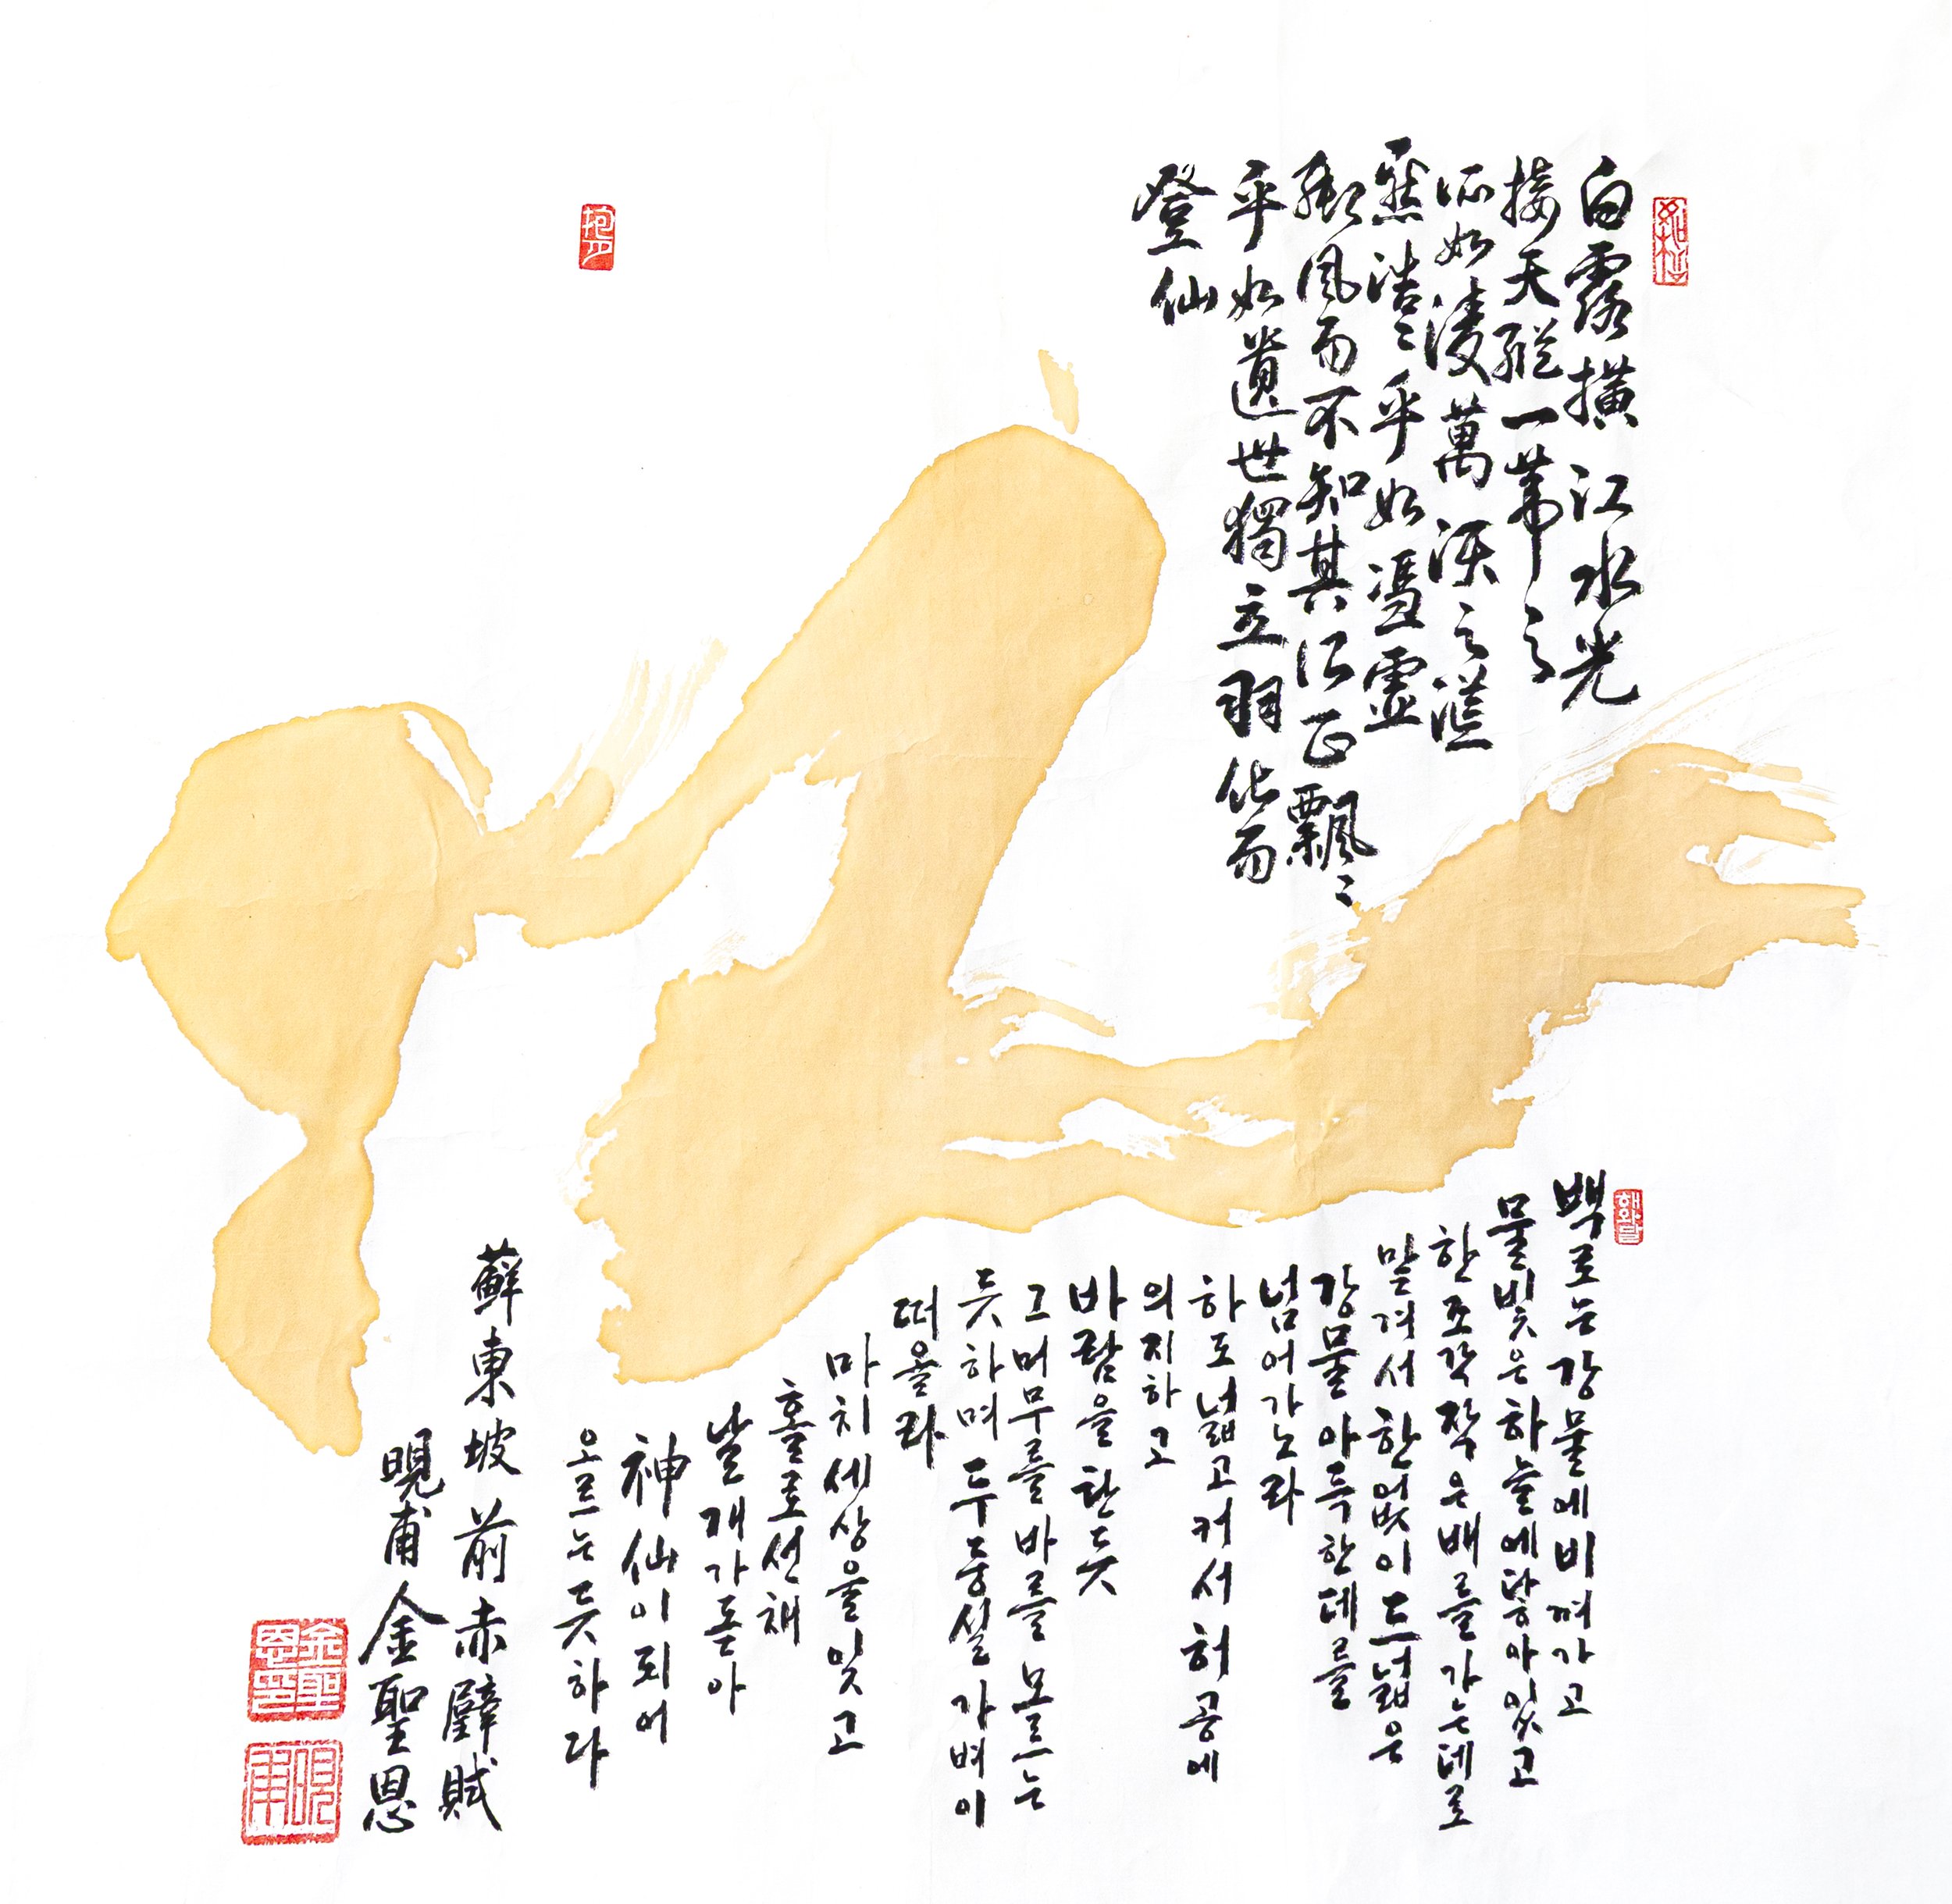 白露橫江水光
接天縱一葦之
所如凌萬頃之茫
然浩〻乎如馮虛
御風而不知其所止飄〻
乎如遺世獨立羽化而
登仙
해와달
백로는 강물에 비껴가고
물빛은 하늘에 닿아있고
한조각 작은 배를 가는데로
맡겨서 한없이 드넓은
강물 아득한데를
넘어가노라
하도 넓고 커서 허공에
의지하고
바람을 탄 듯
그 머무를 바를 모르는
듯하며 두둥실 가벼이
떠올라
마치 세상을 잊고
홀로 선 채
날개가 돋아
神仙이 되어
오르는 듯하다
蘇東坡前赤壁賦
晛甫金聖恩
金聖恩印
晛甫